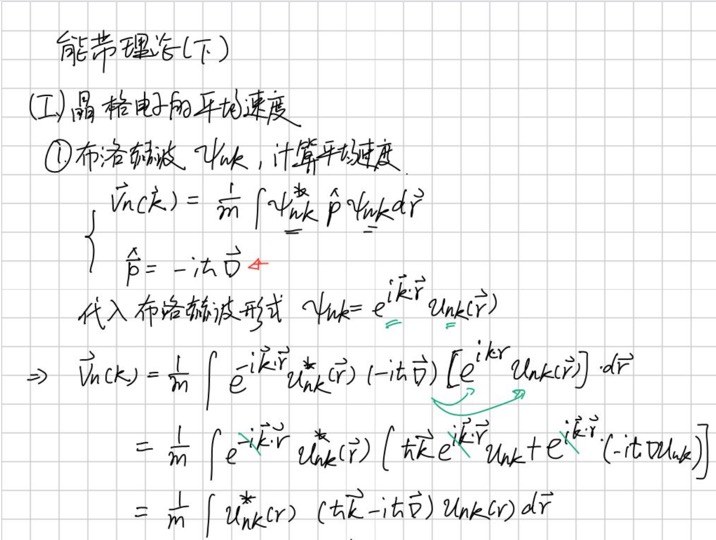 能带理论(下)
(I)晶格电子的平均速度
①布洛赫波 ψnk,计算平均速度
v⃗n(k⃗) = 1/m ∫ψ*nk p̂ ψnk dr⃗
p̂ = -iℏ∇⃗
代入布洛赫波形式 ψnk = e^{ik⃗·r⃗} unk(r⃗)
⇒ v⃗n(k) = 1/m ∫ e^{-ik⃗·r⃗} u*nk(r⃗) (-iℏ∇⃗) [e^{ikr} unk(r⃗)]·dr⃗
= 1/m ∫ e^{-ik⃗·r} u*nk(r⃗) (ℏk⃗ e^{ik⃗·r⃗} unk + e^{ik⃗·r⃗}·(-iℏ∇unk)]
= 1/m ∫ u*nk(r) (ℏk⃗ - iℏ∇⃗) unk(r) dr⃗